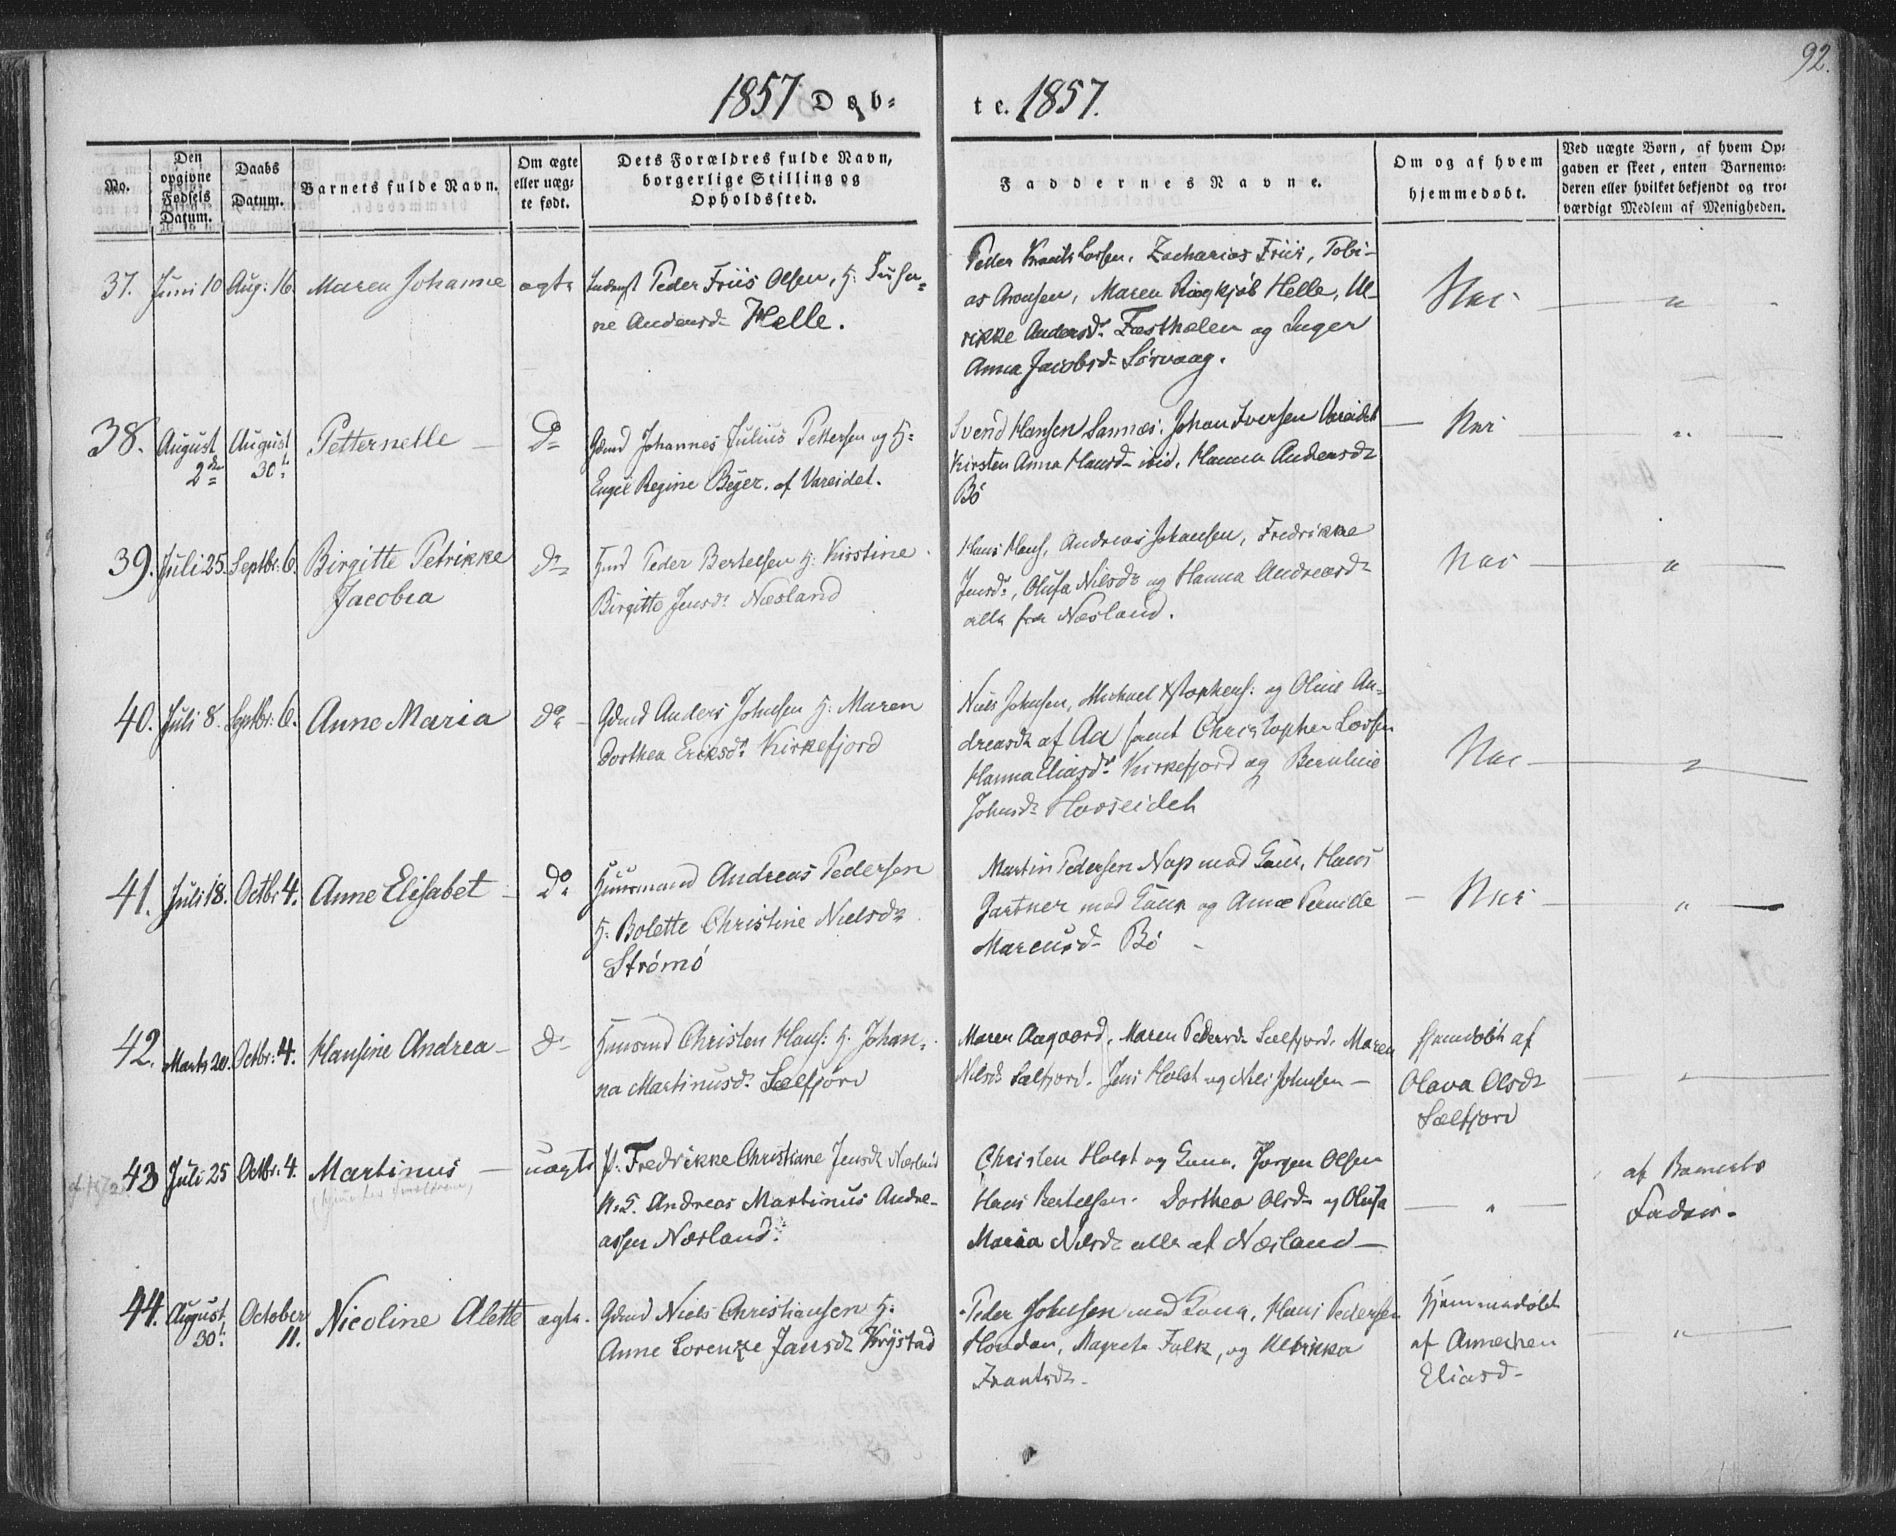 92.
1857 Døb-
te. 1857.
No.
Den opgivne Fødsels Datum.
Daabs Datum.
Barnets fulde Navn.
Om ægte eller uægte født.
Dets Forældres fulde Navn, borgerlige Stilling og Opholdssted.
Faddernes Navne.
Om og af hvem hjemmedøbt.
Ved uægte Børn, af hvem Opgaven er skeet, enten Barnemoderen eller hvilket bekjendt og troværdigt Medlem af Menigheden.
37. Juni 10 Aug: 16. Maren Johanne ægte
Peder Friis Olsen, H:
ne Andersd. Helle.
Larsen, Zacharias Friis, Tobi-
as Aronsen, Maren Ringkjøb Helle, Ul-
rikke Andersd. Festhælen og Inger
Anna Jacobsd. Sørvaag.
Nei "
38. August 2den August 30te Petternelle Do
Gdmd Johannes Julius Pettersen og H:
Engel Regine Beyer. af Vareidet.
Svend Hansen Sannæs, Johan Iversen Vareidet
Kirsten Anna Hansd. ibid. Hanna Andersdt
Bö
Nei "
39. Juli 25. Septbr. 6. Birgitte Petrikke
Jacobea
Do
Hmd Peder Bertelsen H: Kirstine
Birgitte Jensdt Næsland
Hans Hans, Andreas Johansen, Fredrikke
Jensdt, Olufa Nilsdt og Hanna Andreasdt
alle fra Næsland.
Nei "
40. Juli 8. Septbr: 6. Anne Maria Do
Gdmd Anders Johnsen H: Maren
Dorthea Eriksdt Kirkefjord
Niels Johnsen, Michael Xstophers: og Oline An-
dreasdt af Aa samt Christopher Larsen
Hanna Eliasdt Kirkefjord og Bernline
Johnsdt Horseidet
Nei "
41. Juli 18. Octbr 4. Anne Elisabet Do
Huusmand Andreas Pedersen
H: Bolette Christine Nielsdt
Strømö
Martin Pedersen Nap med Kone, Hans
Gartner med Kone og Anne Pernille
Marcusd. Bö
Nei "
42. Marts 20. Octbr: 4. Hansine Andrea Do
Huusmd Christen Hans: H: Johan-
na Martinusdt Sælfjord
Maren Aagaard, Maren Pedersdt Sælfjord, Maren
Nilsdt Sælfjord. Jens Holst og Nils Johnsen
Hjemdøbt af
Olava Olsdt
Sælfjord
43 Juli 25 Octbr. 4. Martinus uægte
P. Fredrikke Christiane Jensdt Næsland
U.K. Andreas Martinus Andre-
assen Næsland.
Christen Holst og Kone, Jørgen Olsen
Hans Bertelsen. Dorthea Olsd. og Olufa
Maria Nilsdt alle af Næsland
"
af Barnets
Fader.
44. August 30te October 11. Nicoline Alette ægte.
Gdmd Niels Christiansen H:
Anne Lorentze Jansdt Krystad
Peder Johnsen med Kone, Hans Pedersen
Houdan, Magrete Falk, og Ulrikka
Frantsdt.
Hjemmedøbt
af Annecken
Eliasd.
"